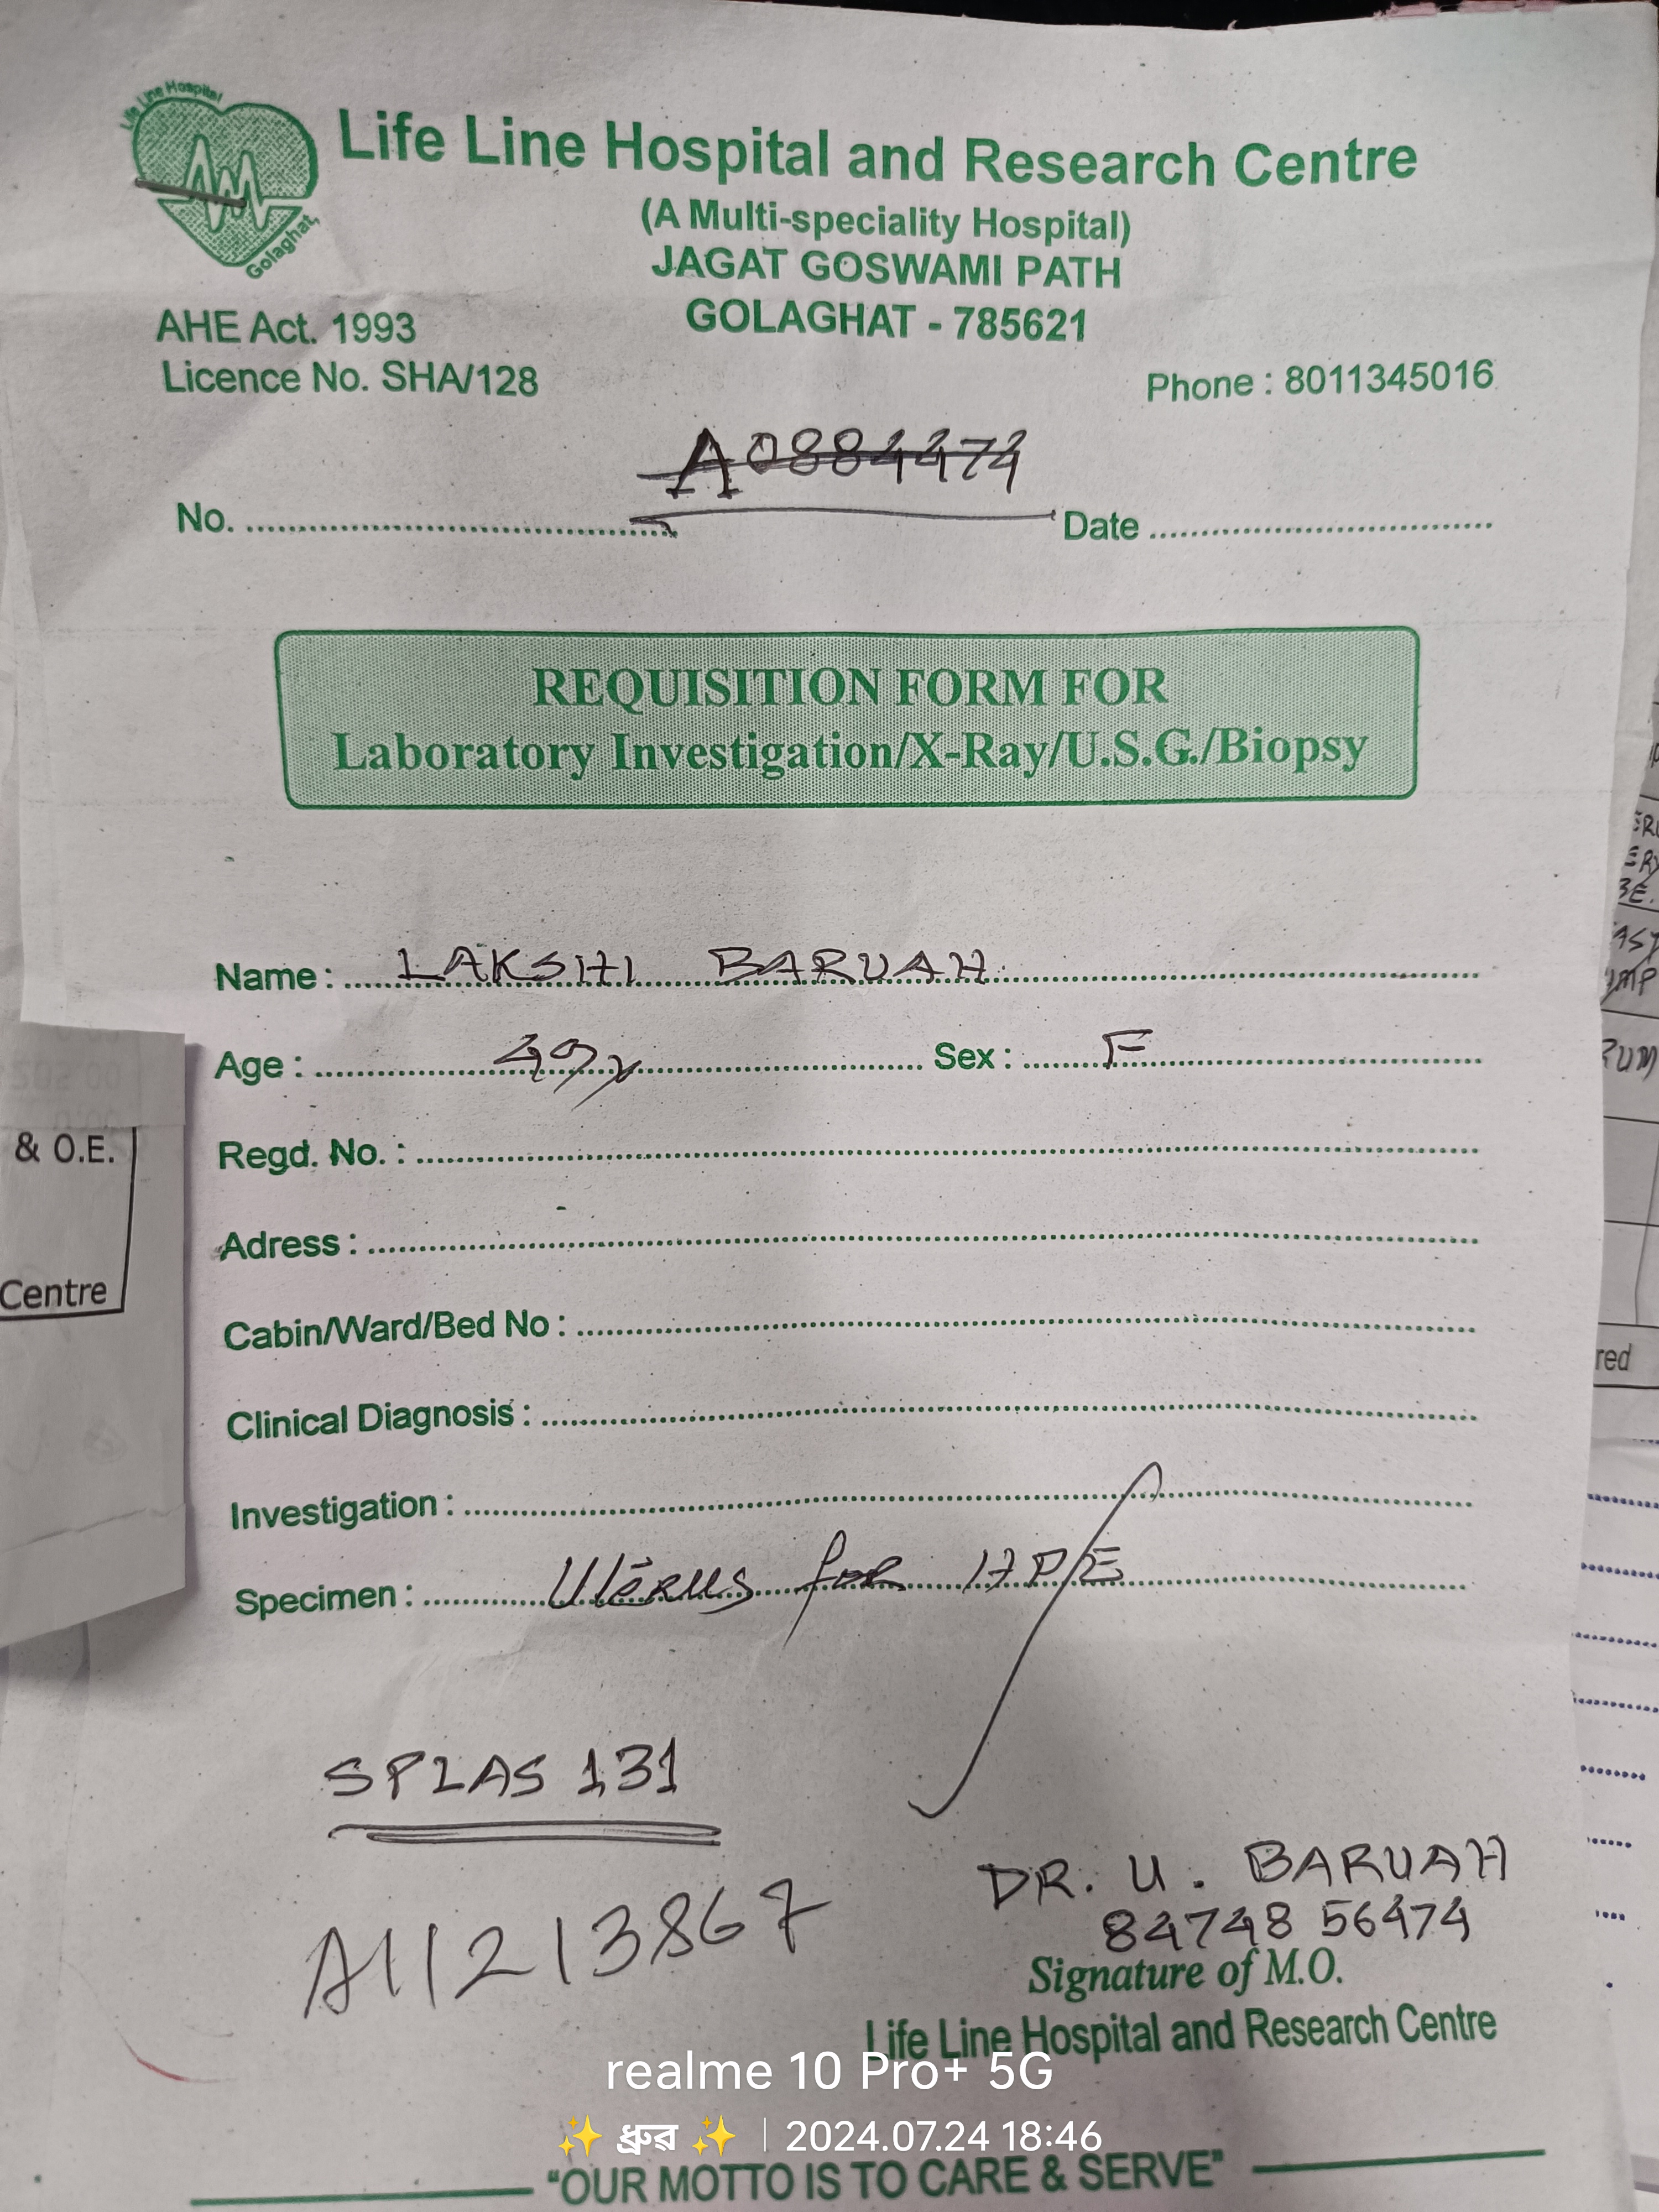 Life Line Hospital
Golaghat,
Life Line Hospital and Research Centre
(A Multi-speciality Hospital)
JAGAT GOSWAMI PATH
GOLAGHAT - 785621
AHE Act. 1993
Licence No. SHA/128
Phone : 8011345016
A0884474
No. Date
REQUISITION FORM FOR
Laboratory Investigation/X-Ray/U.S.G./Biopsy
Name : LAKSHI BARUAH
Age : 49y Sex : F
Regd. No. :
Adress :
Cabin/Ward/Bed No :
Clinical Diagnosis :
Investigation :
Specimen : Uterus for HPE
SPLAS 131
A11213867
DR. U. BARUAH
84748 56474
Signature of M.O.
Life Line Hospital and Research Centre
"OUR MOTTO IS TO CARE & SERVE"
& O.E.
Centre
red
realme 10 Pro+ 5G
✨ ধ্ৰুৱ ✨ | 2024.07.24 18:46